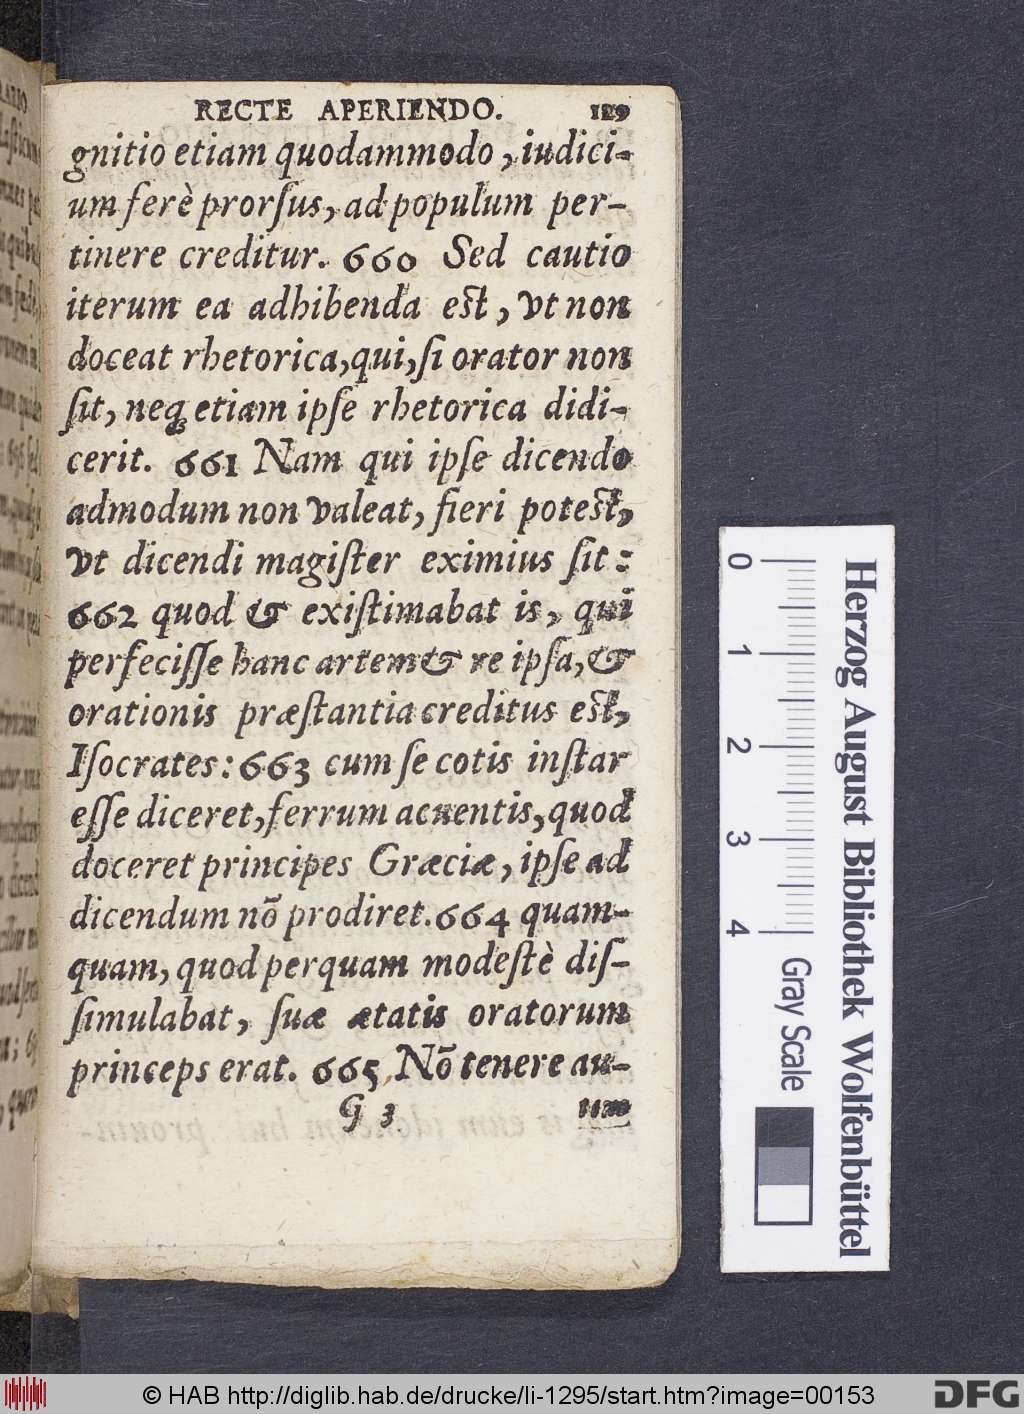 RECTE APERIENDO. 129
gnitio etiam quodammodo, iudici-
um ferè prorſus, ad populum per-
tinere creditur. 660 Sed cautio
iterum ea adhibenda eſt, vt non
doceat rhetorica, qui, ſi orator non
ſit, neqꝫ etiam ipſe rhetorica didi-
cerit. 661 Nam qui ipſe dicendo
admodum non valeat, fieri poteſt,
vt dicendi magiſter eximius ſit:
662 quod & exiſtimabat is, qui
perfeciſſe hanc artem & re ipſa, &
orationis præſtantia creditus eſt,
Iſocrates: 663 cum ſe cotis inſtar
eſſe diceret, ferrum acuentis, quod
doceret principes Græciæ, ipſe ad
dicendum nõ prodiret. 664 quam-
quam, quod perquam modeſtè diſ-
ſimulabat, ſuæ ætatis oratorum
princeps erat. 665 Nõ tenere au-
G 3
Herzog August Bibliothek Wolfenbüttel
0 1 2 3 4
Gray Scale
© HAB http://diglib.hab.de/drucke/li-1295/start.htm?image=00153
DFG